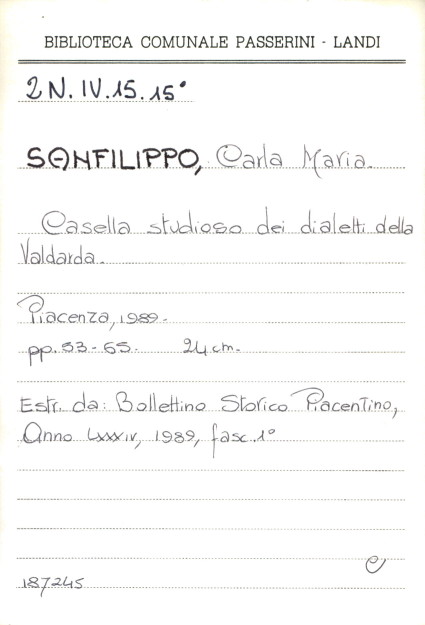 BIBLIOTECA COMUNALE PASSERINI - LANDI
2 N. IV. 15. 15°
SANFILIPPO, Carla Maria.
Casella studioso dei dialetti della
Valdarda.
Piacenza, 1989.
pp. 53-65. 24 cm.
Estr. da: Bollettino Storico Piacentino,
Anno LXXXIV, 1989, fasc. 1°
e
187245